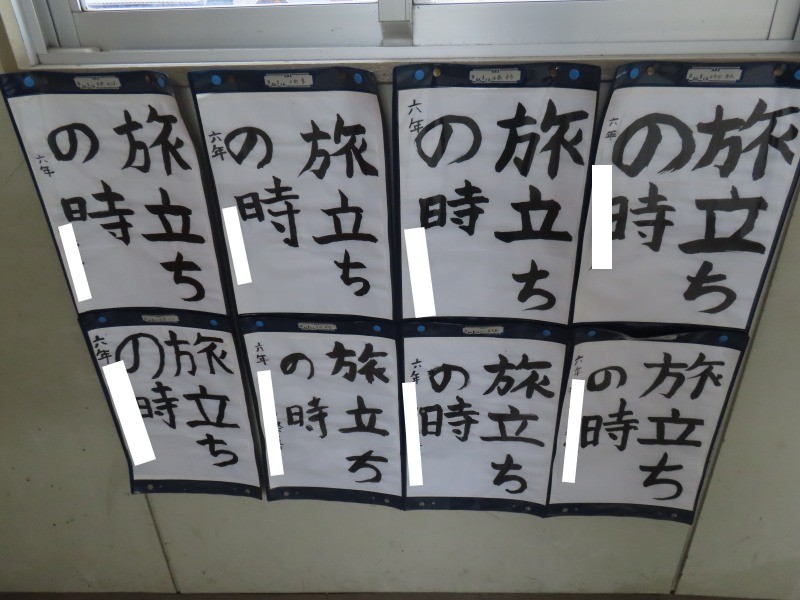 旅立ち
の時
六年
旅立ち
の時
六年
旅立ち
の時
六年
旅立ち
の時
六年
旅立ち
の時
六年
旅立ち
の時
六年
旅立ち
の時
六年
旅立ち
の時
六年